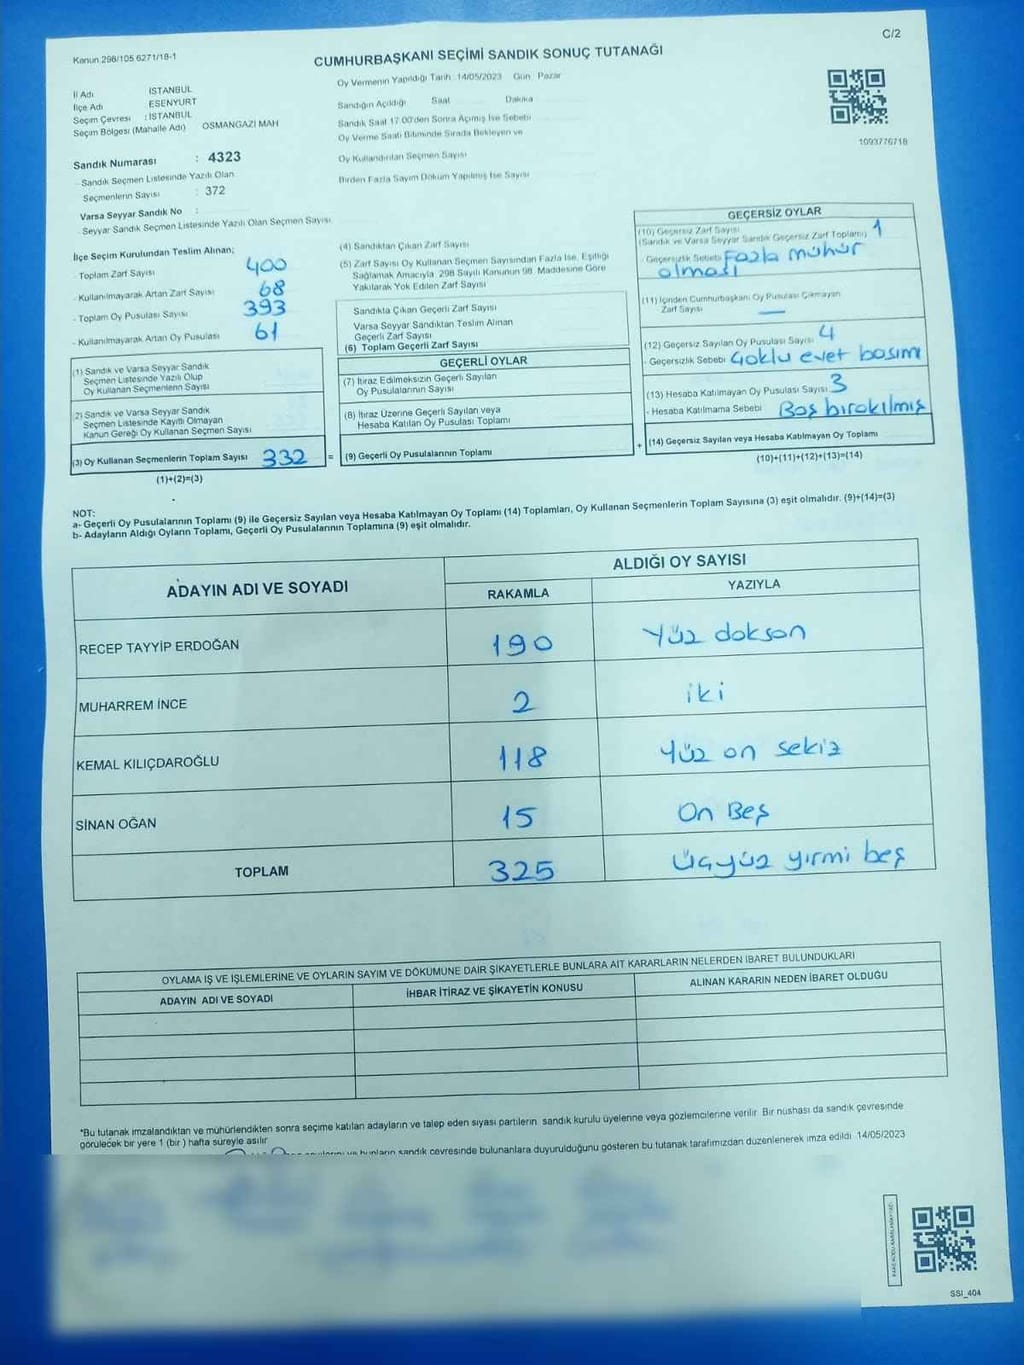 C/2
Kanun 298/105 6271/18-1
CUMHURBAŞKANI SEÇİMİ SANDIK SONUÇ TUTANAĞI
İl Adı İSTANBUL
İlçe Adı ESENYURT
Seçim Çevresi : İSTANBUL
Seçim Bölgesi (Mahalle Adı) OSMANGAZİ MAH
Sandık Numarası : 4323
- Sandık Seçmen Listesinde Yazılı Olan
Seçmenlerin Sayısı : 372
Varsa Seyyar Sandık No :
- Seyyar Sandık Seçmen Listesinde Yazılı Olan Seçmen Sayısı
Oy Vermenin Yapıldığı Tarih 14/05/2023 Gün Pazar
Sandığın Açıldığı Saat Dakika
Sandık Saat 17:00'den Sonra Açmış İse Sebebi
Oy Verme Saati Bitiminde Sırada Bekleyen ve
Oy Kullandırılan Seçmen Sayısı
Birden Fazla Sayım Döküm Yapılmış İse Sayısı
1093776718
İlçe Seçim Kurulundan Teslim Alınan;
- Toplam Zarf Sayısı 400
- Kullanılmayarak Artan Zarf Sayısı 68
- Toplam Oy Pusulası Sayısı 393
- Kullanılmayarak Artan Oy Pusulası 61
(1) Sandık ve Varsa Seyyar Sandık
Seçmen Listesinde Yazılı Olup
Oy Kullanan Seçmenlerin Sayısı
2) Sandık ve Varsa Seyyar Sandık
Seçmen Listesinde Kayıtlı Olmayan
Kanun Gereği Oy Kullanan Seçmen Sayısı
(3) Oy Kullanan Seçmenlerin Toplam Sayısı 332 =
(1)+(2)=(3)
(4) Sandıktan Çıkan Zarf Sayısı
(5) Zarf Sayısı Oy Kullanan Seçmen Sayısından Fazla İse, Eşitliği
Sağlamak Amacıyla 298 Sayılı Kanunun 98. Maddesine Göre
Yakılarak Yok Edilen Zarf Sayısı
Sandıkta Çıkan Geçerli Zarf Sayısı
Varsa Seyyar Sandıktan Teslim Alınan
Geçerli Zarf Sayısı
(6) Toplam Geçerli Zarf Sayısı
GEÇERLİ OYLAR
(7) İtiraz Edilmeksizin Geçerli Sayılan
Oy Pusulalarının Sayısı
(8) İtiraz Üzerine Geçerli Sayılan veya
Hesaba Katılan Oy Pusulası Toplamı
(9) Geçerli Oy Pusulalarının Toplamı +
GEÇERSİZ OYLAR
(10) Geçersiz Zarf Sayısı
(Sandık ve Varsa Seyyar Sandık Geçersiz Zarf Toplamı) 1
- Geçersizlik Sebebi Fazla mühür
olması
(11) İçinden Cumhurbaşkanı Oy Pusulası Çıkmayan
Zarf Sayısı —
(12) Geçersiz Sayılan Oy Pusulası Sayısı 4
- Geçersizlik Sebebi Çoklu evet basımı
(13) Hesaba Katılmayan Oy Pusulası Sayısı 3
- Hesaba Katılmama Sebebi Boş bırakılmış
(14) Geçersiz Sayılan veya Hesaba Katılmayan Oy Toplamı
(10)+(11)+(12)+(13)=(14)
NOT:
a- Geçerli Oy Pusulalarının Toplamı (9) ile Geçersiz Sayılan veya Hesaba Katılmayan Oy Toplamı (14) Toplamları, Oy Kullanan Seçmenlerin Toplam Sayısına (3) eşit olmalıdır. (9)+(14)=(3)
b- Adayların Aldığı Oyların Toplamı, Geçerli Oy Pusulalarının Toplamına (9) eşit olmalıdır.
ADAYIN ADI VE SOYADI
ALDIĞI OY SAYISI
RAKAMLA YAZIYLA
RECEP TAYYİP ERDOĞAN 190 Yüz doksan
MUHARREM İNCE 2 iki
KEMAL KILIÇDAROĞLU 118 Yüz on sekiz
SİNAN OĞAN 15 On Beş
TOPLAM 325 Üçyüz yirmi beş
OYLAMA İŞ VE İŞLEMLERİNE VE OYLARIN SAYIM VE DÖKÜMÜNE DAİR ŞİKAYETLERLE BUNLARA AİT KARARLARIN NELERDEN İBARET BULUNDUKLARI
ADAYIN ADI VE SOYADI İHBAR İTİRAZ VE ŞİKAYETİN KONUSU ALINAN KARARIN NEDEN İBARET OLDUĞU
*Bu tutanak imzalandıktan ve mühürlendikten sonra seçime katılan adayların ve talep eden siyasi partilerin sandık kurulu üyelerine veya gözlemcilerine verilir Bir nüshası da sandık çevresinde
görülecek bir yere 1 (bir ) hafta süreyle asılır
ve bunların sandık çevresinde bulunanlara duyurulduğunu gösteren bu tutanak tarafımızdan düzenlenerek imza edildi 14/05/2023
SSI_404